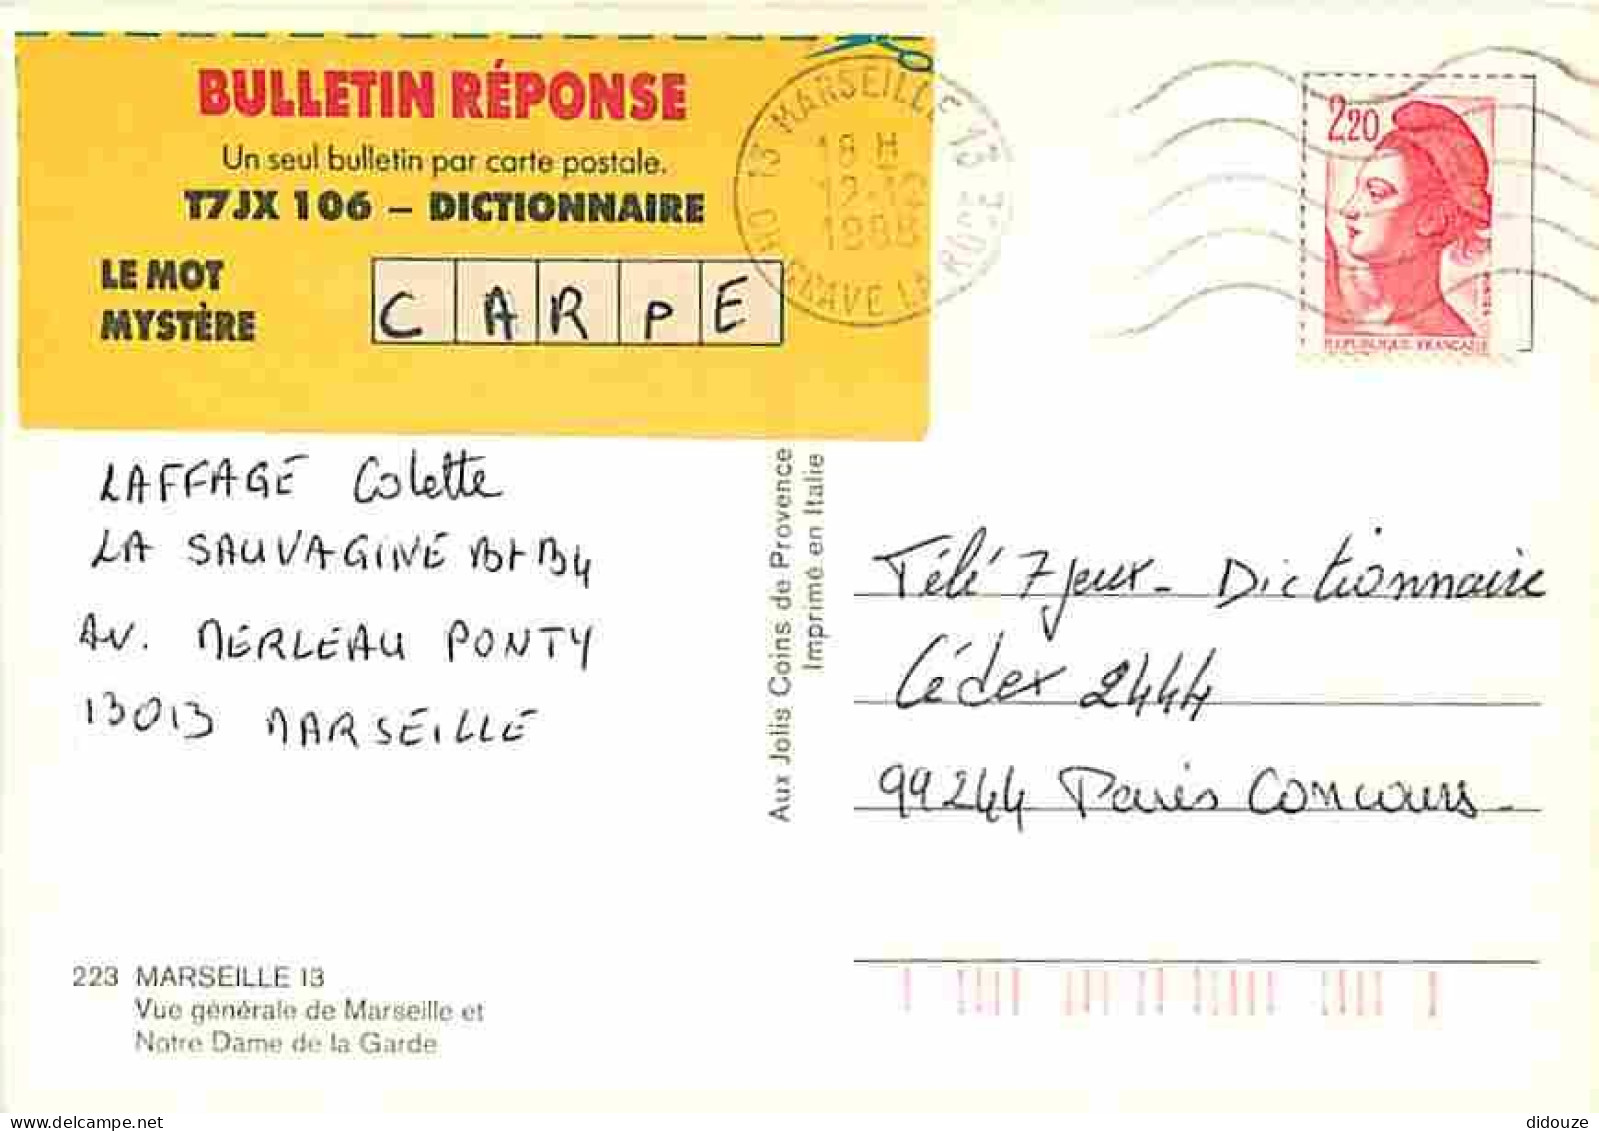 BULLETIN RÉPONSE
Un seul bulletin par carte postale.
T7JX 106 – DICTIONNAIRE
LE MOT
MYSTÈRE
C A R P E
13 MARSEILLE 13
18 H
12-12
2,20
REPUBLIQUE FRANÇAISE
LAFFAGE Colette
LA SAUVAGINE Bt B4
AV. MERLEAU PONTY
13013 MARSEILLE
Aux Jolis Coins de Provence
Imprimé en Italie
Télé 7 jeux - Dictionnaire
Cédex 2444
99244 Paris Concours -
223 MARSEILLE 13
Vue générale de Marseille et
Notre Dame de la Garde
delcampe.net
didouze